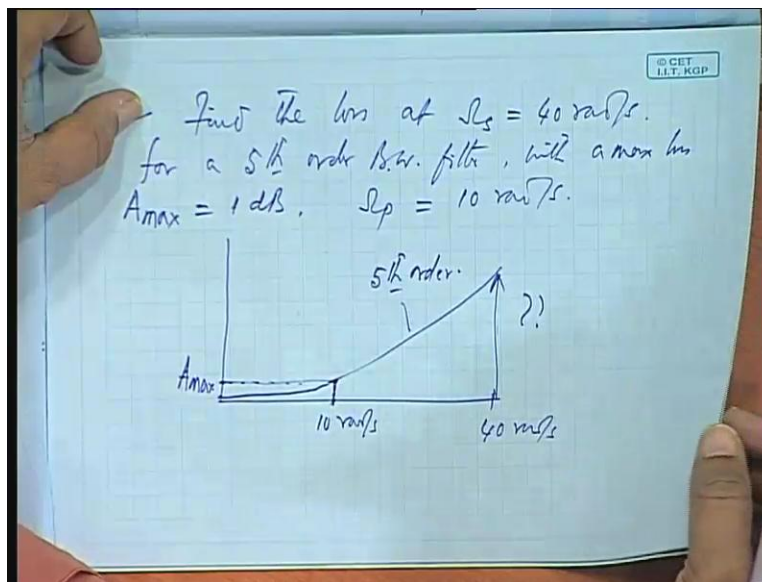 © CET
I.I.T. KGP
Find the loss at Ωs = 40 rad/s.
for a 5th order B.W. filter, with a max loss
Amax = 1 dB. Ωp = 10 rad/s.
5th order.
??
Amax
10 rad/s
40 rad/s